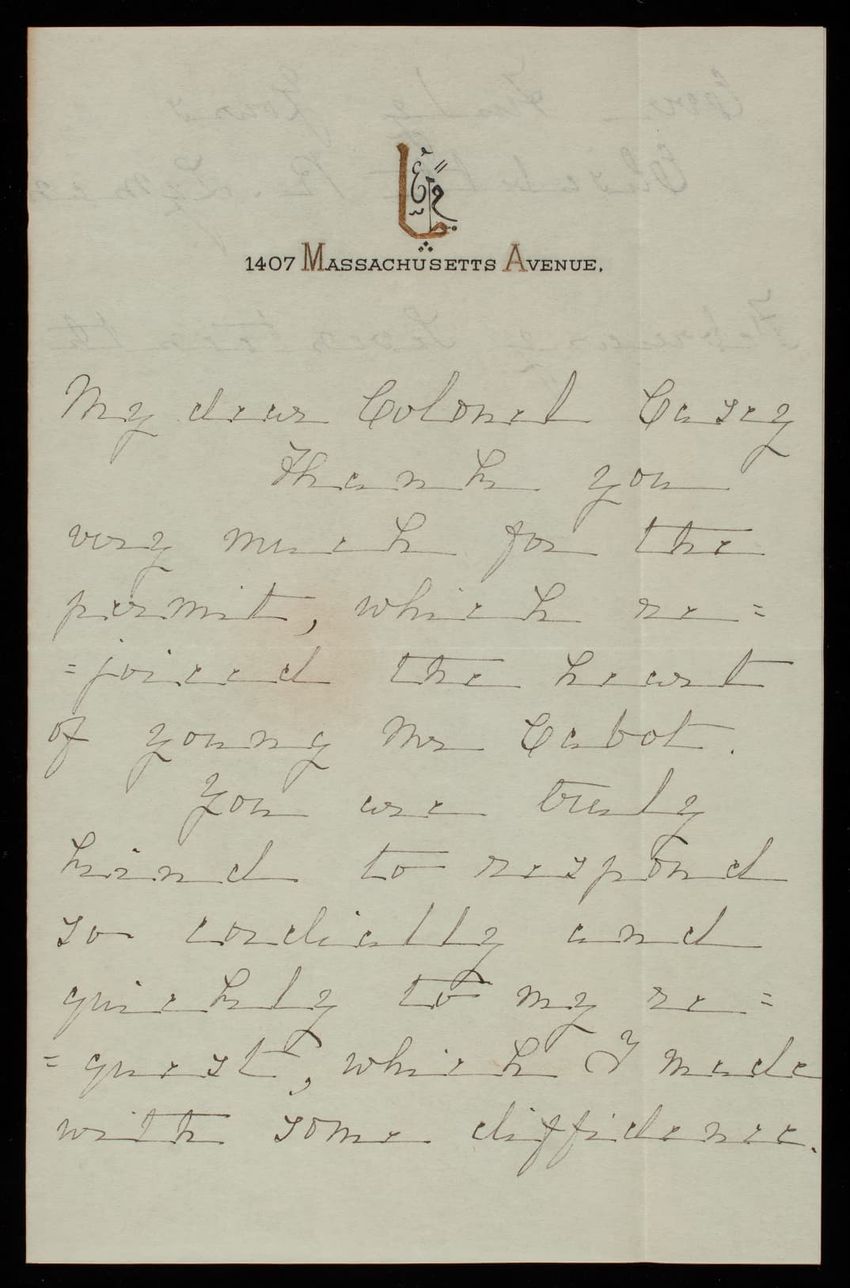 1407 MASSACHUSETTS AVENUE.
My dear Colonel Casey
Thank you
very much for the
permit, which re=
=joiced the heart
of young Mr Cabot.
You are truly
kind to respond
so cordially and
quickly to my re=
=quest, which I made
with some diffidence.